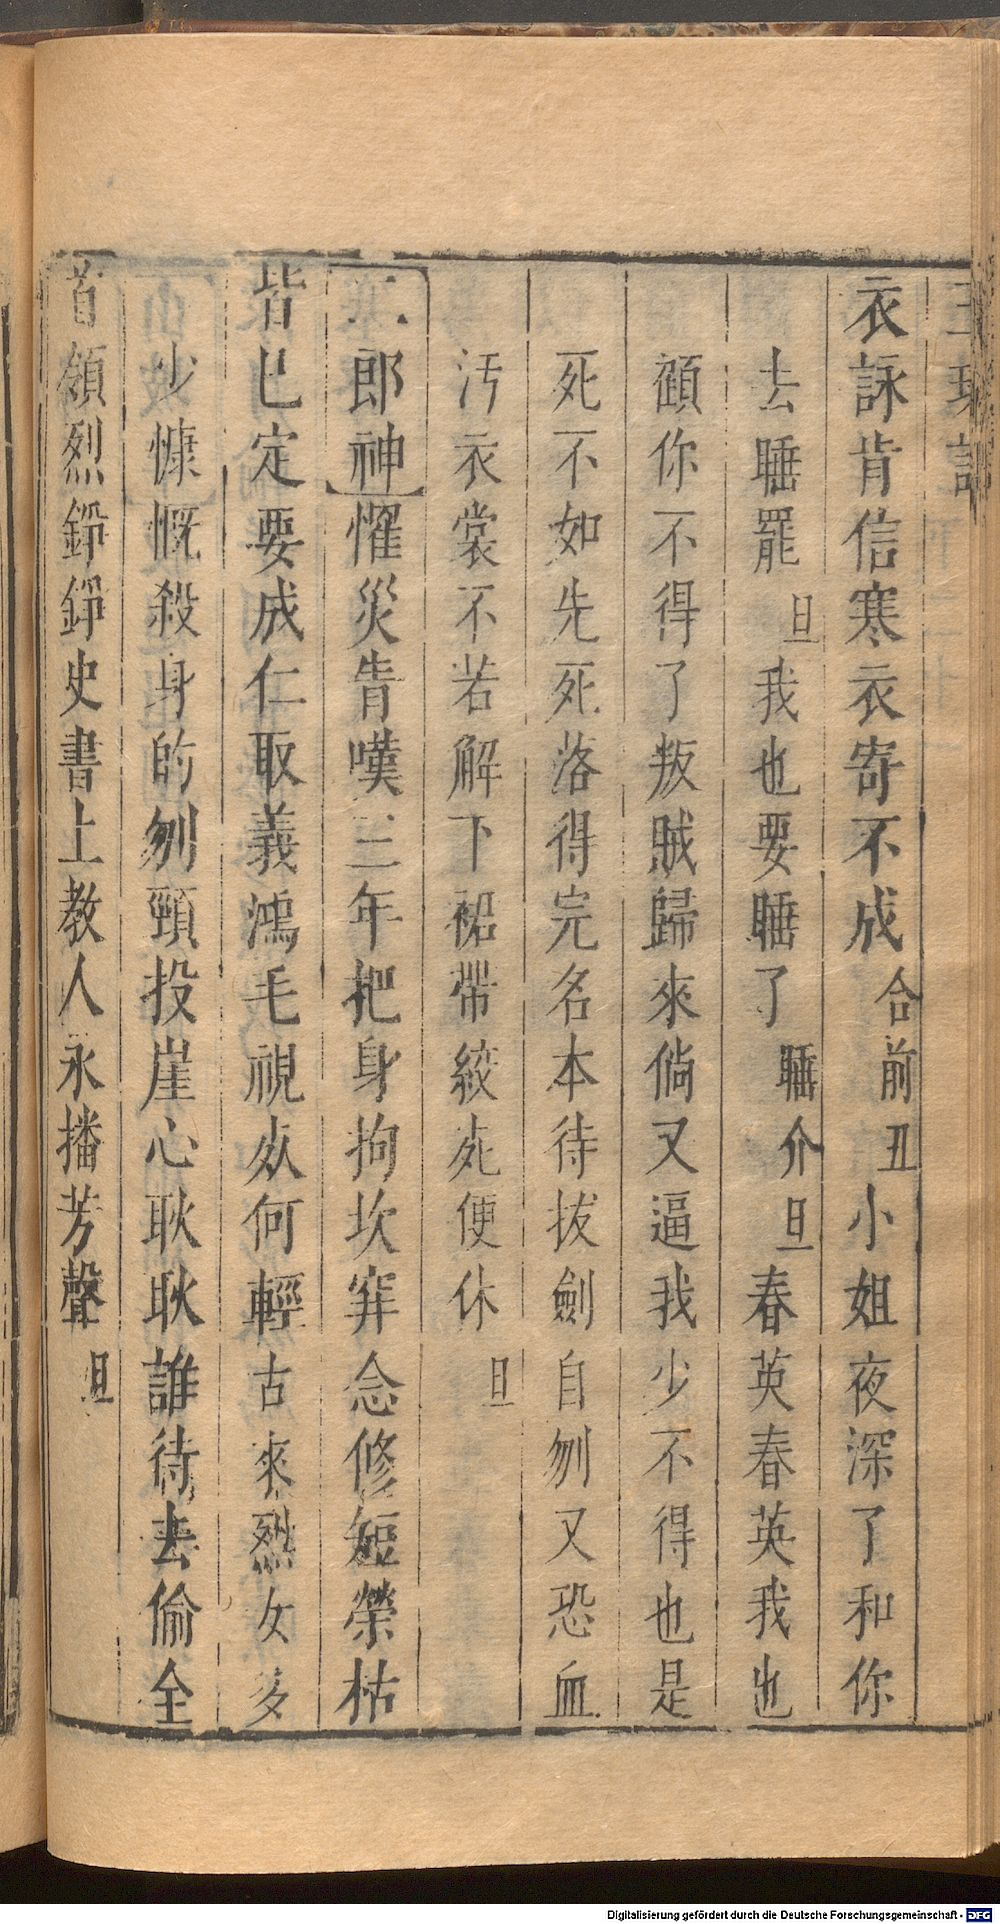 衣詠肯信寒衣寄不成合前丑小姐夜深了和你
去睡罷旦我也要睡了睡介旦春英春英我也
顧你不得了叛賊歸來倘又逼我少不得也是
死不如先死落得完名本待拔劍自刎又恐血
汚衣裳不若解下裙帶絞死便休旦
二郎神懼災眚嘆三年把身拘坎穽念修短榮枯
皆已定要成仁取義鴻毛視死何輕古來烈女多
少慷慨殺身的刎頸投崖心耿耿誰待去偷全
首領烈錚錚史書上教人永播芳聲旦
Digitalisierung gefördert durch die Deutsche Forschungsgemeinschaft - DFG